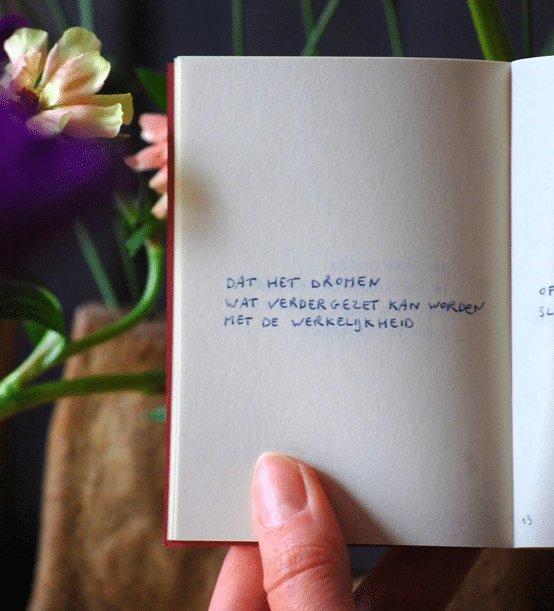 DAT HET DROMEN
WAT VERDER GEZET KAN WORDEN
MET DE WERKELIJKHEID
OF
SL
13